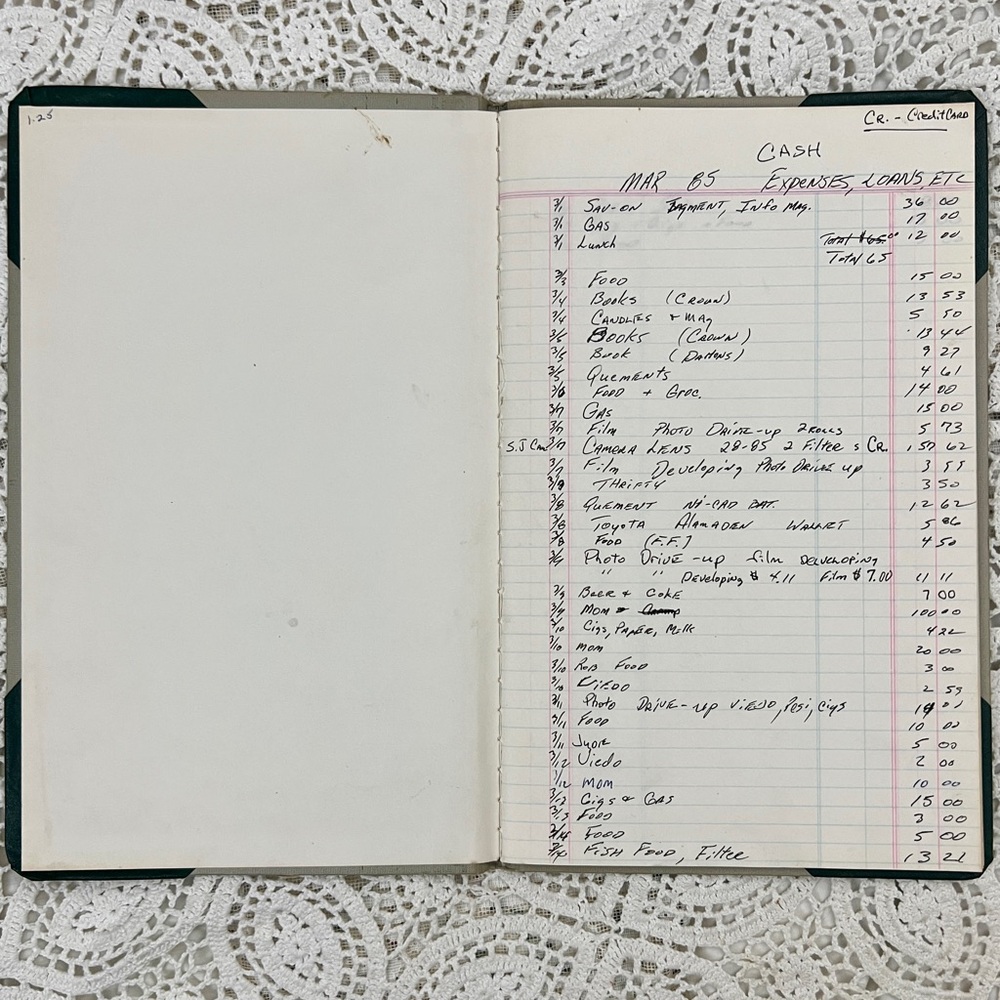 1.25
CR. - Credit CARD
CASH
MAR 85 Expenses, LOANS, ETC
3/1 SAV-ON Info Mag. 36 00
3/1 GAS 17 00
3/1 Lunch Total $65.00 12 00
Total 65
3/3 FOOD 15 00
3/4 Books (CROWN) 13 53
3/4 CANDLIES & MAg 5 50
3/5 BOOKS (CROWN) 13 44
3/5 Book (DALTONS) 9 27
3/5 QUEMENTS 4 61
3/6 FOOD + GROC. 14 00
3/7 GAS 15 00
3/7 Film PHOTO DRIVE-up 2 ROLLS 5 73
S.J Cam 3/7 CAMERA LENS 28-85 2 Filter s CR. 157 62
3/7 Film Developing Photo DRIVE up 3 99
3/8 THRIFTY 3 50
3/8 QUEMENT Ni-CAD BAT. 12 62
3/8 TOYOTA ALAMADEN 5 86
3/8 FOOD (F.F.) 4 50
3/9 Photo DRIVE-up film DEVELOPING
" " Developing $ 4.11 Film $ 7.00 11 11
3/9 BEER & COKE 7 00
3/9 MOM 100 00
3/10 Cigs, PAPER, Milk 4 22
3/10 mom 20 00
3/10 ROB FOOD 3 00
3/10 VIEDO 2 59
3/11 Photo DRIVE-up VIEDO, Pesi, Cigs
3/11 FOOD 10 00
3/11 5 00
3/12 Viedo 2 00
3/12 MOM 10 00
3/12 Cigs & GAS 15 00
3/13 FOOD 3 00
3/14 FOOD 5 00
3/14 FISH FOOD, Filter 13 21